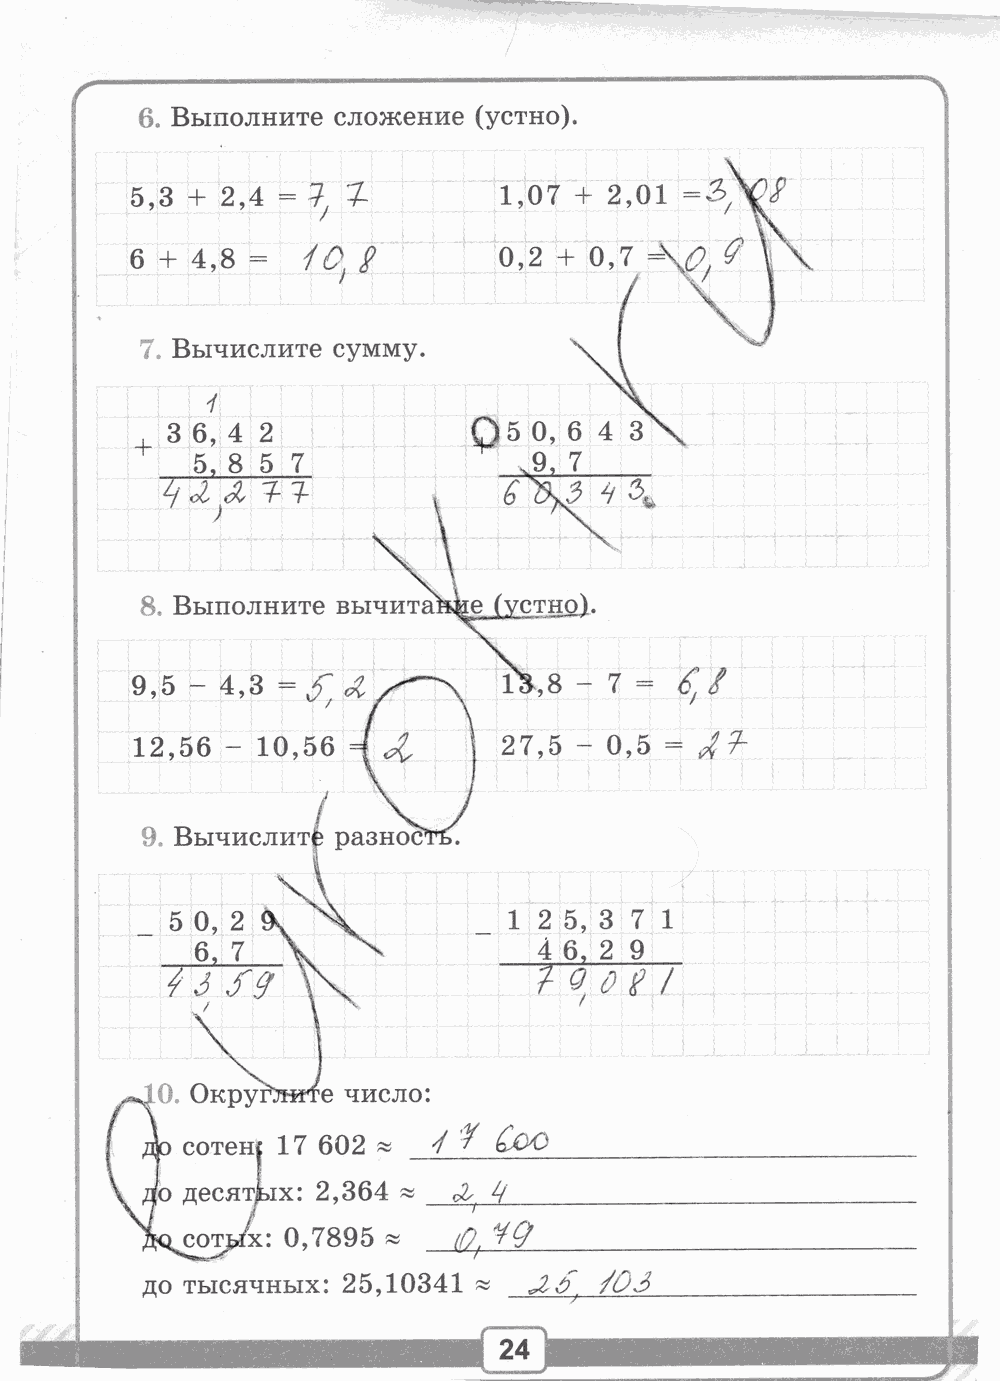 6. Выполните сложение (устно).
5,3 + 2,4 = 7,7 1,07 + 2,01 = 3,08
6 + 4,8 = 10,8 0,2 + 0,7 = 0,9
7. Вычислите сумму.
1
+ 36,42 + 50,643
5,857 9,7
42,277 60,343
8. Выполните вычитание (устно).
9,5 − 4,3 = 5,2 13,8 − 7 = 6,8
12,56 − 10,56 = 2 27,5 − 0,5 = 27
9. Вычислите разность.
− 50,29 − 125,371
6,7 46,29
43,59 79,081
10. Округлите число:
до сотен: 17 602 ≈ 17 600
до десятых: 2,364 ≈ 2,4
до сотых: 0,7895 ≈ 0,79
до тысячных: 25,10341 ≈ 25,103
24